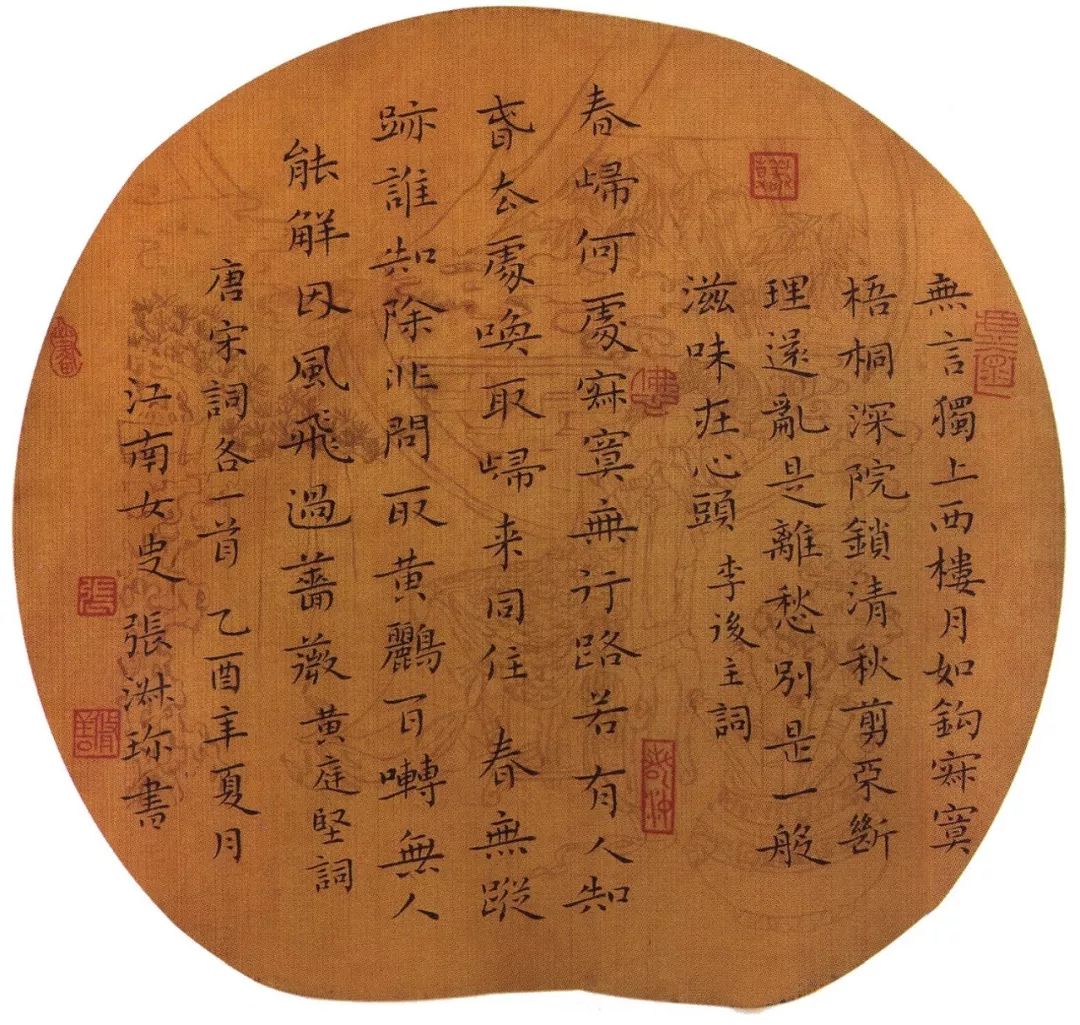 無言獨上西樓月如鈎寂寞
梧桐深院鎖清秋剪不斷
理還亂是離愁別是一般
滋味在心頭 李後主詞
春歸何處寂寞無行路若有人知
春去處喚取歸来同住 春無蹤
跡誰知除非問取黃鸝百囀無人
能解因風飛過薔薇 黃庭堅詞
唐宋詞各一首 乙酉年夏月
江南女史 張淑珎書